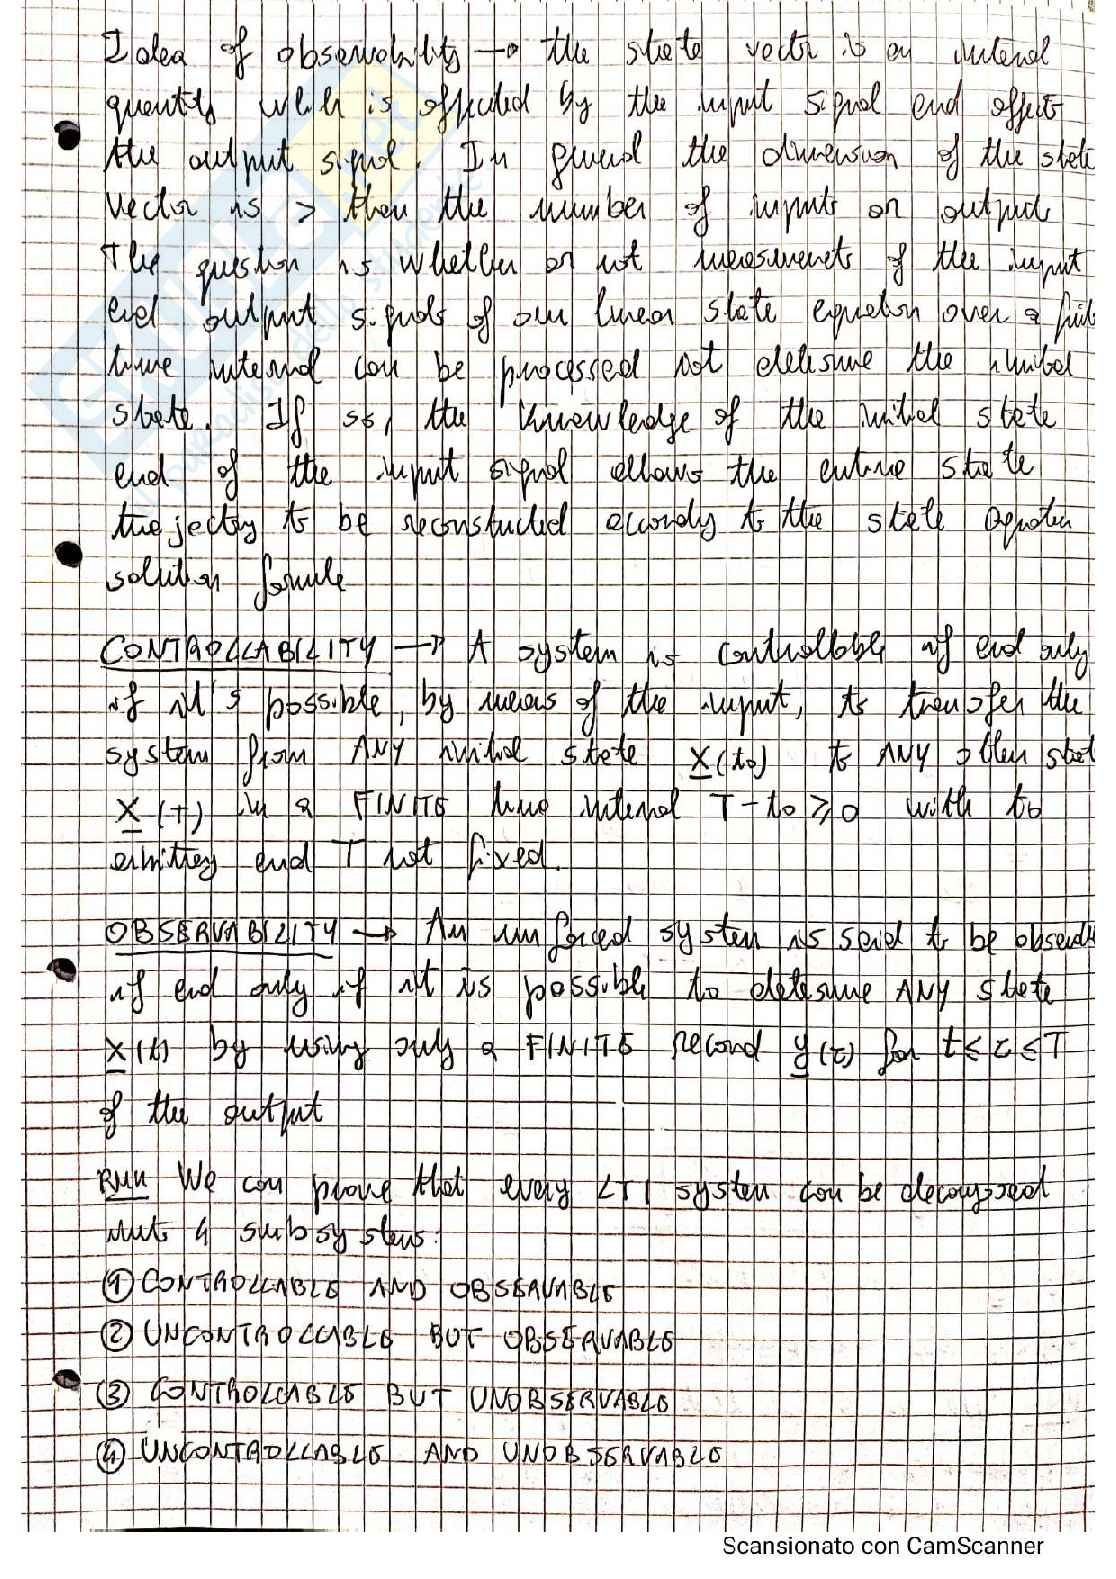 Idea of observability → the state vector is an internal
quantity which is affected by the input signal and affects
the output signal. In general the dimension of the state
vector is > than the number of inputs or outputs
The question is whether or not measurements of the input
and output signals of our linear state equation over a finite
time interval can be processed not determine the initial
state. If so, the knowledge of the initial state
and of the input signal allows the entire state
trajectory to be reconstructed accordly to the state equation
solution formula
CONTROLLABILITY → A system is controllable if and only
if it's possible, by means of the input, to transfer the
system from ANY initial state X(t0) to ANY other state
X(T) in a FINITE time interval T-t0 ≥ 0 with t0
arbitrary and T not fixed.
OBSERVABILITY → An unforced system is said to be observable
if and only if it is possible to determine ANY state
X(t) by using only a FINITE record y(τ) for t≤τ≤T
of the output
RMK We can prove that every LTI system can be decomposed
into 4 subsystems:
① CONTROLLABLE AND OBSERVABLE
② UNCONTROLLABLE BUT OBSERVABLE
③ CONTROLLABLE BUT UNOBSERVABLE
④ UNCONTROLLABLE AND UNOBSERVABLE
Scansionato con CamScanner